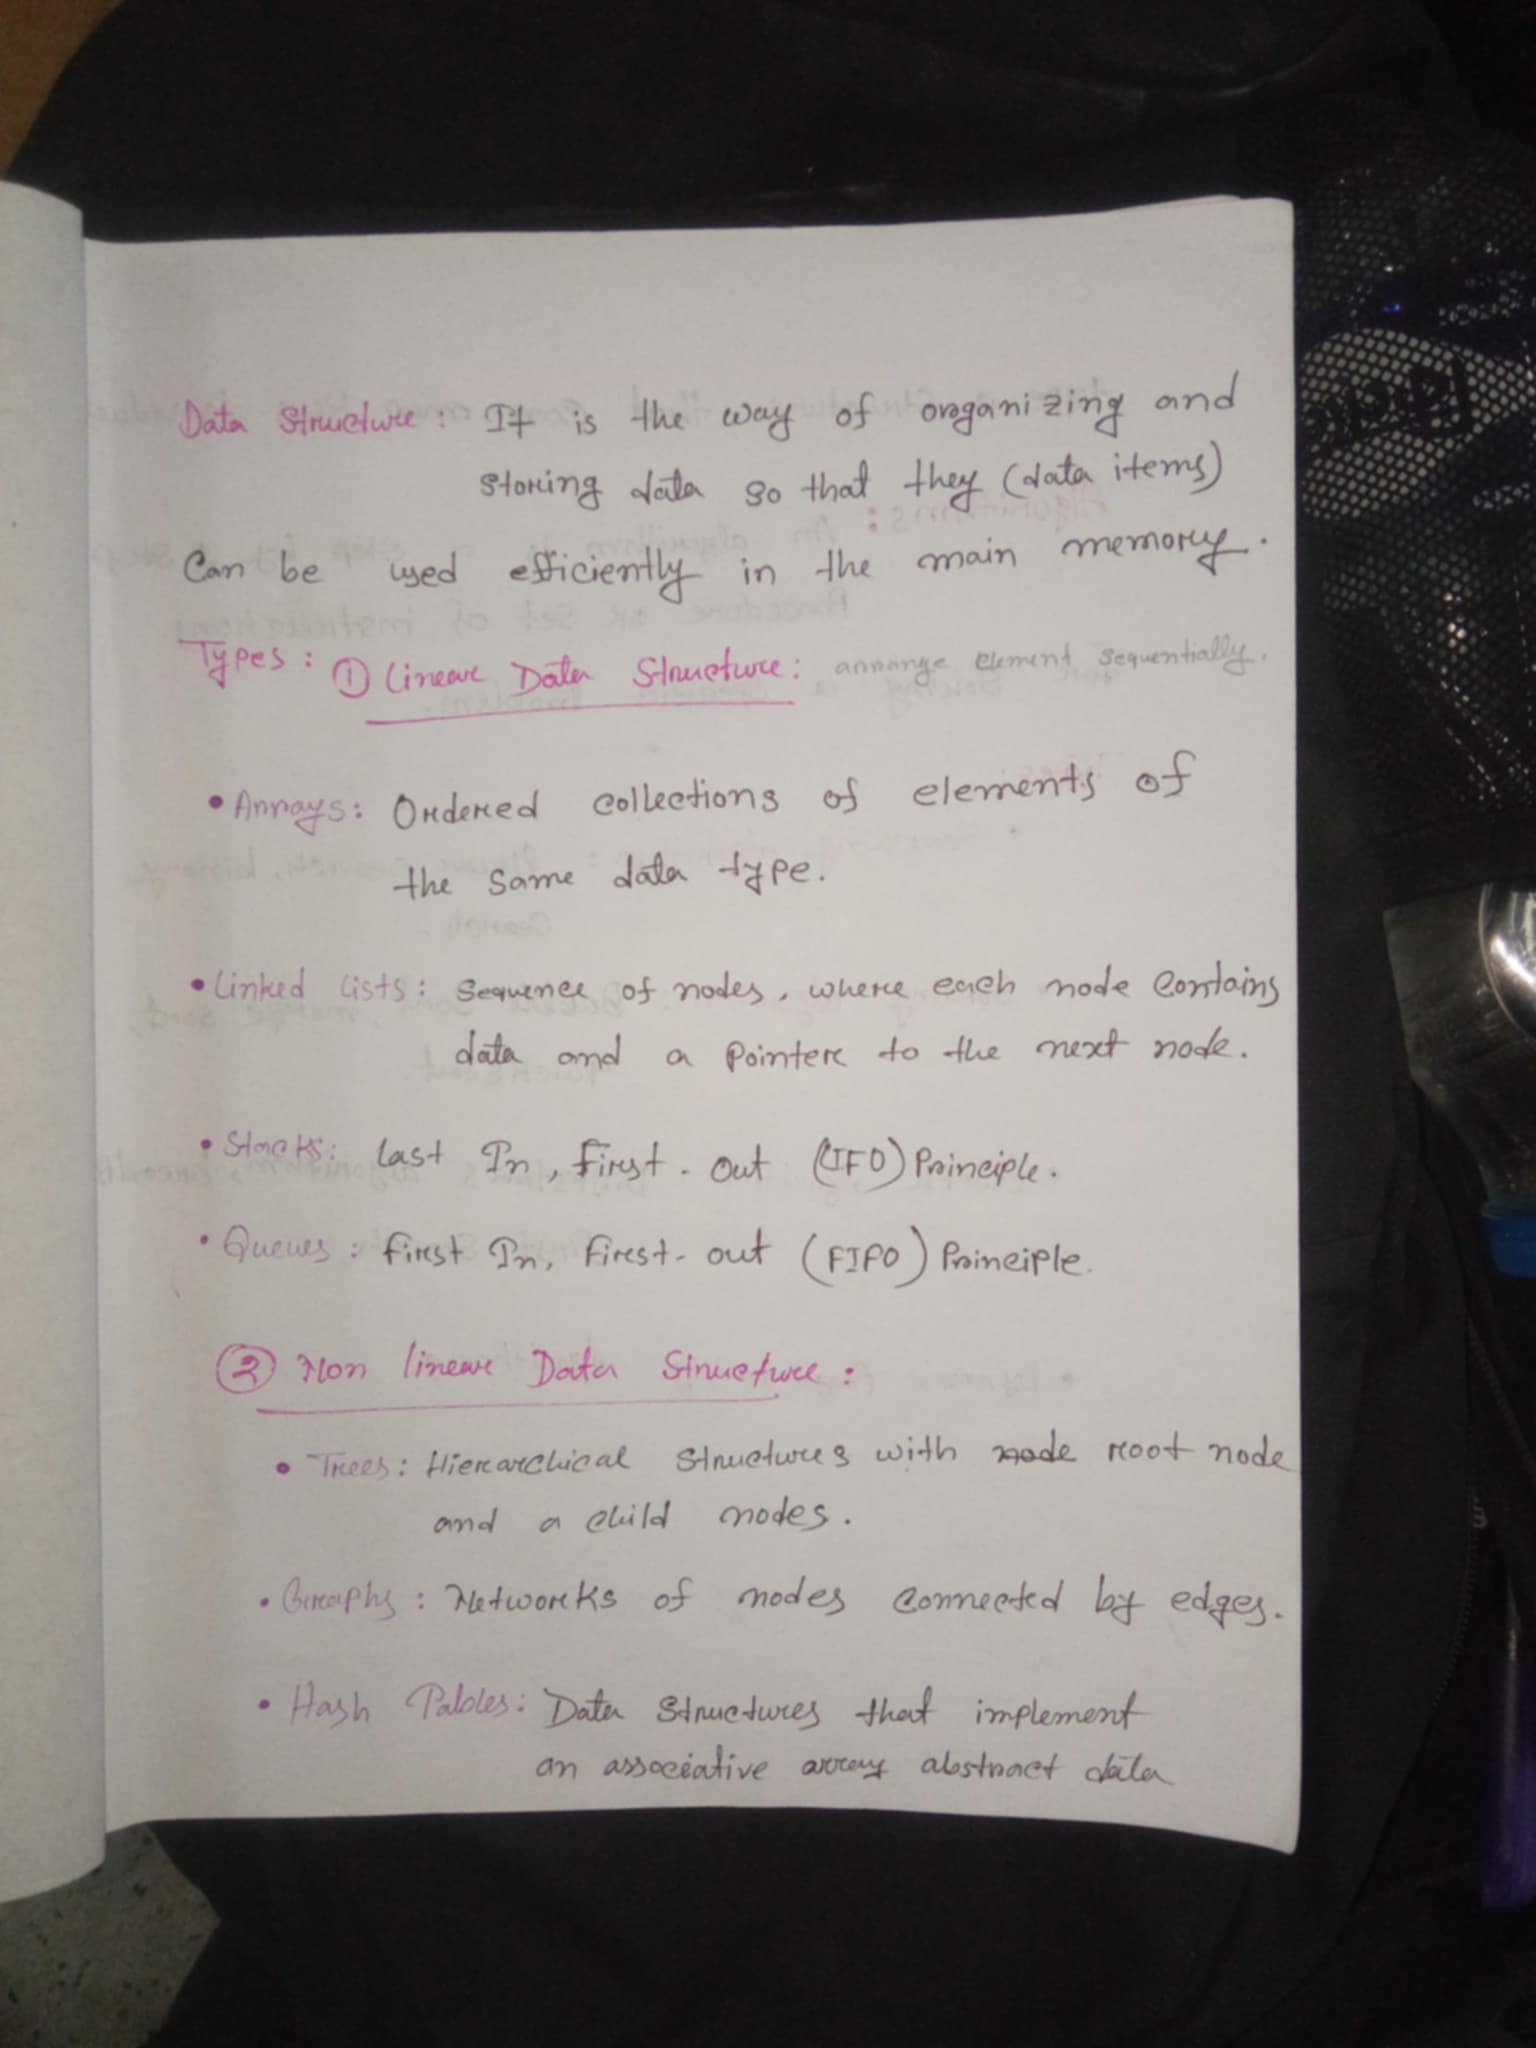 Data Structure: It is the way of organizing and
storing data so that they (data items)
Can be used efficiently in the main memory.
Types: ① Linear Data Structure: arrange element sequentially.
• Arrays: Ordered collections of elements of
the same data type.
• Linked Lists: Sequence of nodes, where each node Contains
data and a Pointer to the next node.
• Stacks: Last In, First-Out (LIFO) Principle.
• Queues: First In, First-Out (FIFO) Principle.
② Non linear Data Structure:
• Trees: Hierarchical Structures with node root node
and a child nodes.
• Graphs: Networks of nodes Connected by edges.
• Hash Tables: Data Structures that implement
an associative array abstract data